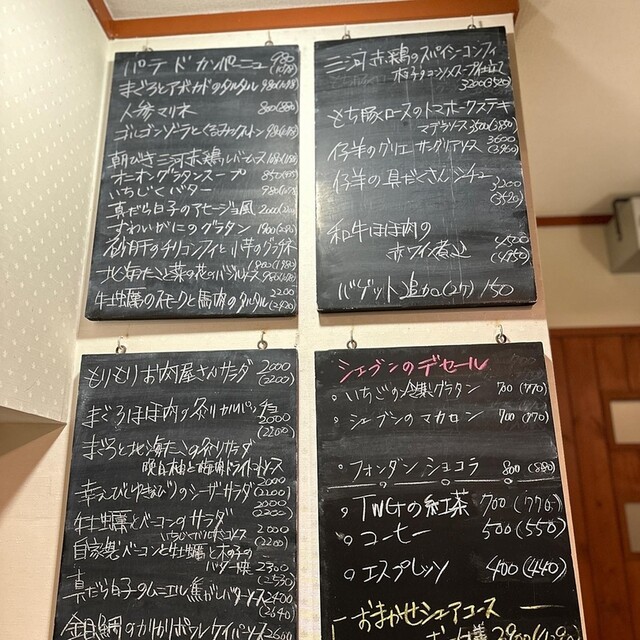 パテドカンパーニュ 980 (1078)
まぐろとアボカドのタルタル 980 (1078)
人参マリネ 800 (880)
ゴルゴンゾーラとくるみの 980 (1078)
朝びき三河赤鶏レバームース
オニオングラタンスープ 850
いちじくバター 980
真だら白子のアヒージョ風 2000
ずわいがにのグラタン 1900
砂肝のチリコンフィと小芋のグラチネ
1800 (1980)
北海たこと菜の花のバジルソース 980
牡蠣のスモークと馬肉のタルタル 2200
(2420)
三河赤鶏のスパイシーコンフィ
3200 (3520)
もち豚ロースのトマホークステーキ
マデラソース 3500 (3850)
仔羊のグリエ サングリアソース 3600
(3960)
仔羊の具だくさんシチュー
3200
(3520)
和牛ほほ肉の
赤ワイン煮込
(4950)
バゲット追加(2ケ) 150
もりもりお肉屋さんサラダ 2000
(2200)
まぐろほほ肉の炙りカルパッチョ
2000
(2200)
まぐろと北海たこの炙りサラダ
2000
(2200)
幸えびとゆきなのシーザーサラダ 2000
(2200)
牡蠣とベーコンのサラダ 2000
(2200)
自家製ベーコンと牡蠣と木の子の
バター焼 2300
(2530)
真だら白子のムニエル焦がしバターソース 2400
(2640)
金目鯛のカリカリポワレ ケイパーソース 2600
シェブンのデセール
。いちごの グラタン 700 (770)
。シェブンのマカロン 700 (770)
。フォンダンショコラ 800 (880)
。TWGの紅茶 700 (770)
。コーヒー 500 (550)
。エスプレッソ 400 (440)
おまかせシェアコース